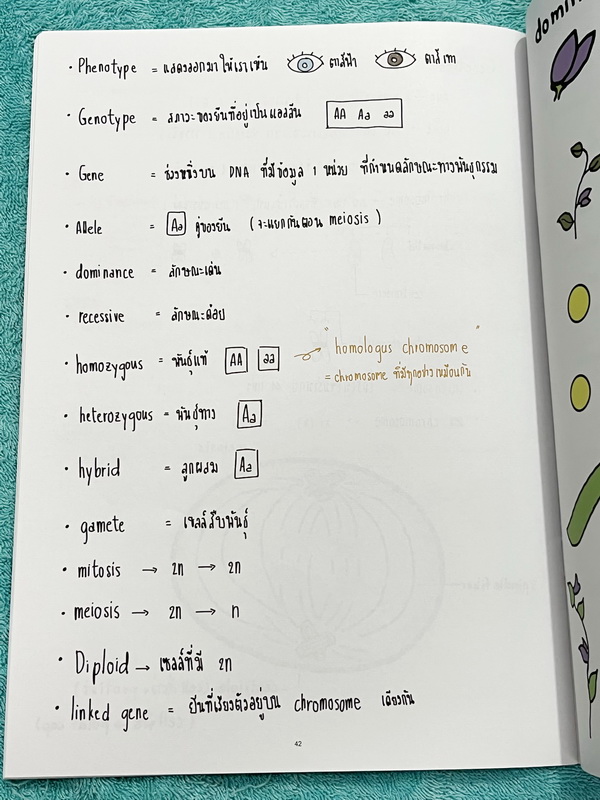 • Phenotype = แสดงออกมาให้เราเห็น ตาสีฟ้า ตาสีเทา
• Genotype = สภาวะของยีนที่อยู่เป็นแอลลีล AA Aa aa
• Gene = ช่วงหนึ่งบน DNA ที่มีข้อมูล 1 หน่วย ที่กำหนดลักษณะทางพันธุกรรม
• Allele = Aa คู่ของยีน (จะแยกกันตอน meiosis)
• dominance = ลักษณะเด่น
• recessive = ลักษณะด้อย
• homozygous = พันธุ์แท้ AA aa → "homologus chromosome"
= chromosome ที่มีทุกอย่างเหมือนกัน
• heterozygous = พันธุ์ทาง Aa
• hybrid = ลูกผสม Aa
• gamete = เซลล์สืบพันธุ์
• mitosis → 2n → 2n
• meiosis → 2n → n
• Diploid → เซลล์ที่มี 2n
• linked gene = ยีนที่เรียงตัวอยู่บน chromosome เดียวกัน
42